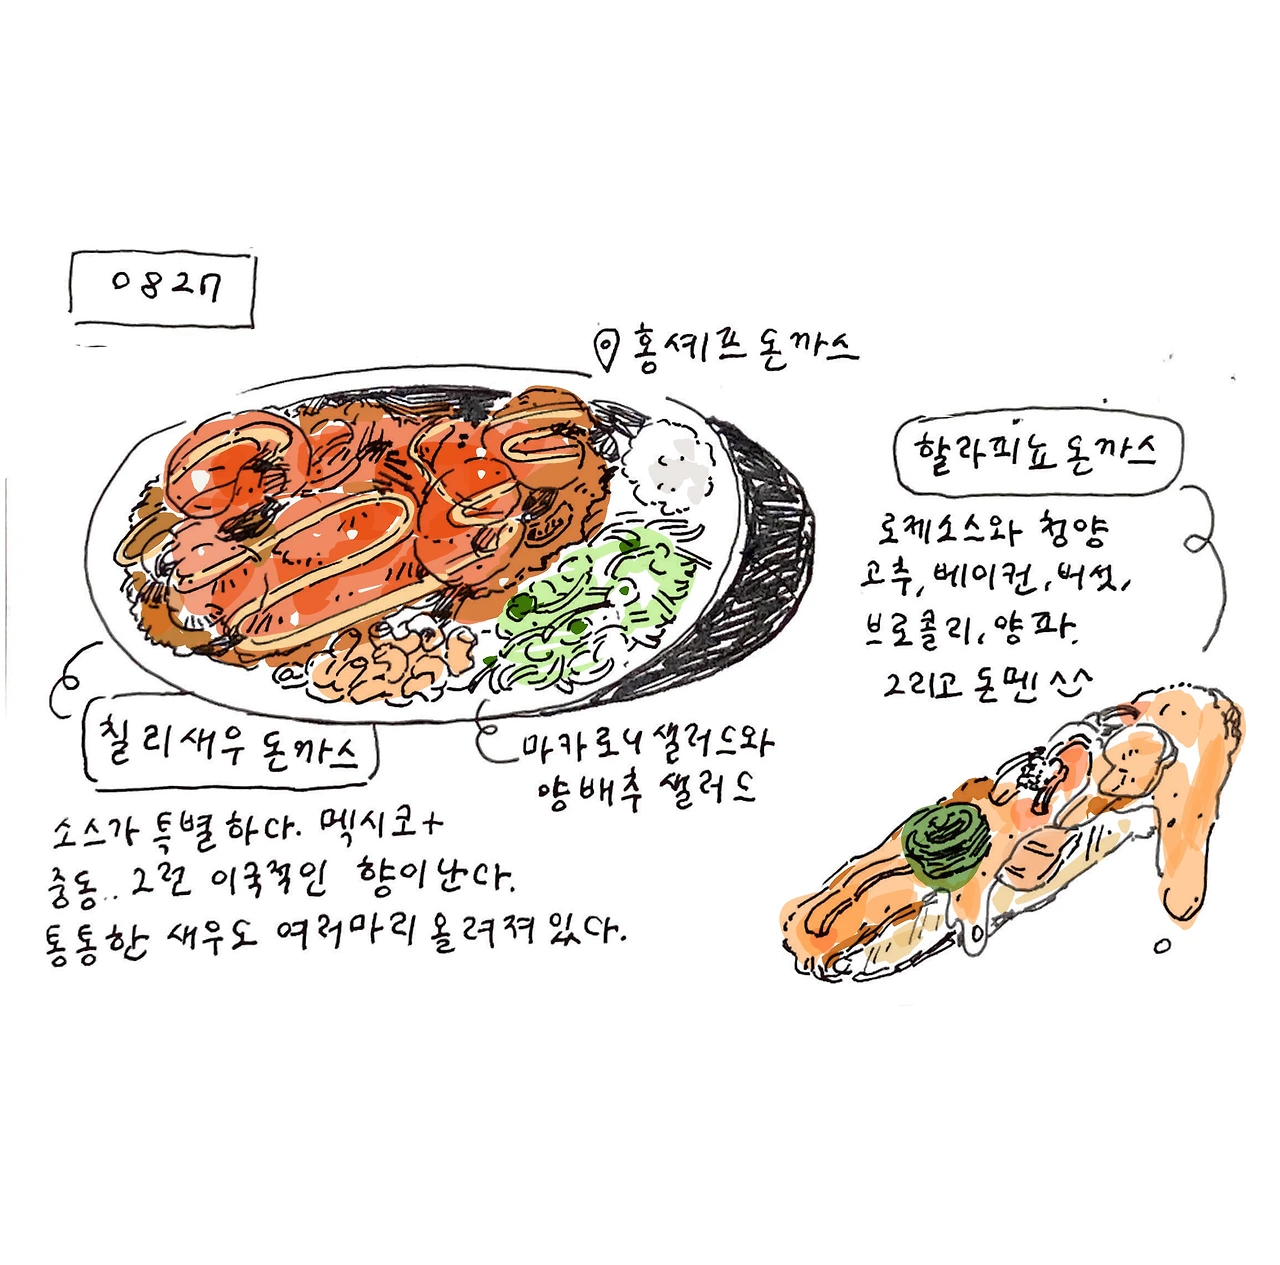 0827
홍셰프돈까스
칠리새우돈까스
소스가 특별하다. 멕시코+
중동.. 그런 이국적인 향이난다.
통통한 새우도 여러마리 올려져있다.
마카로니 샐러드와
양배추 샐러드
할라피뇨돈까스
로제소스와 청양
고추, 베이컨, 버섯,
브로콜리, 양파.
그리고 돈멘 ^^